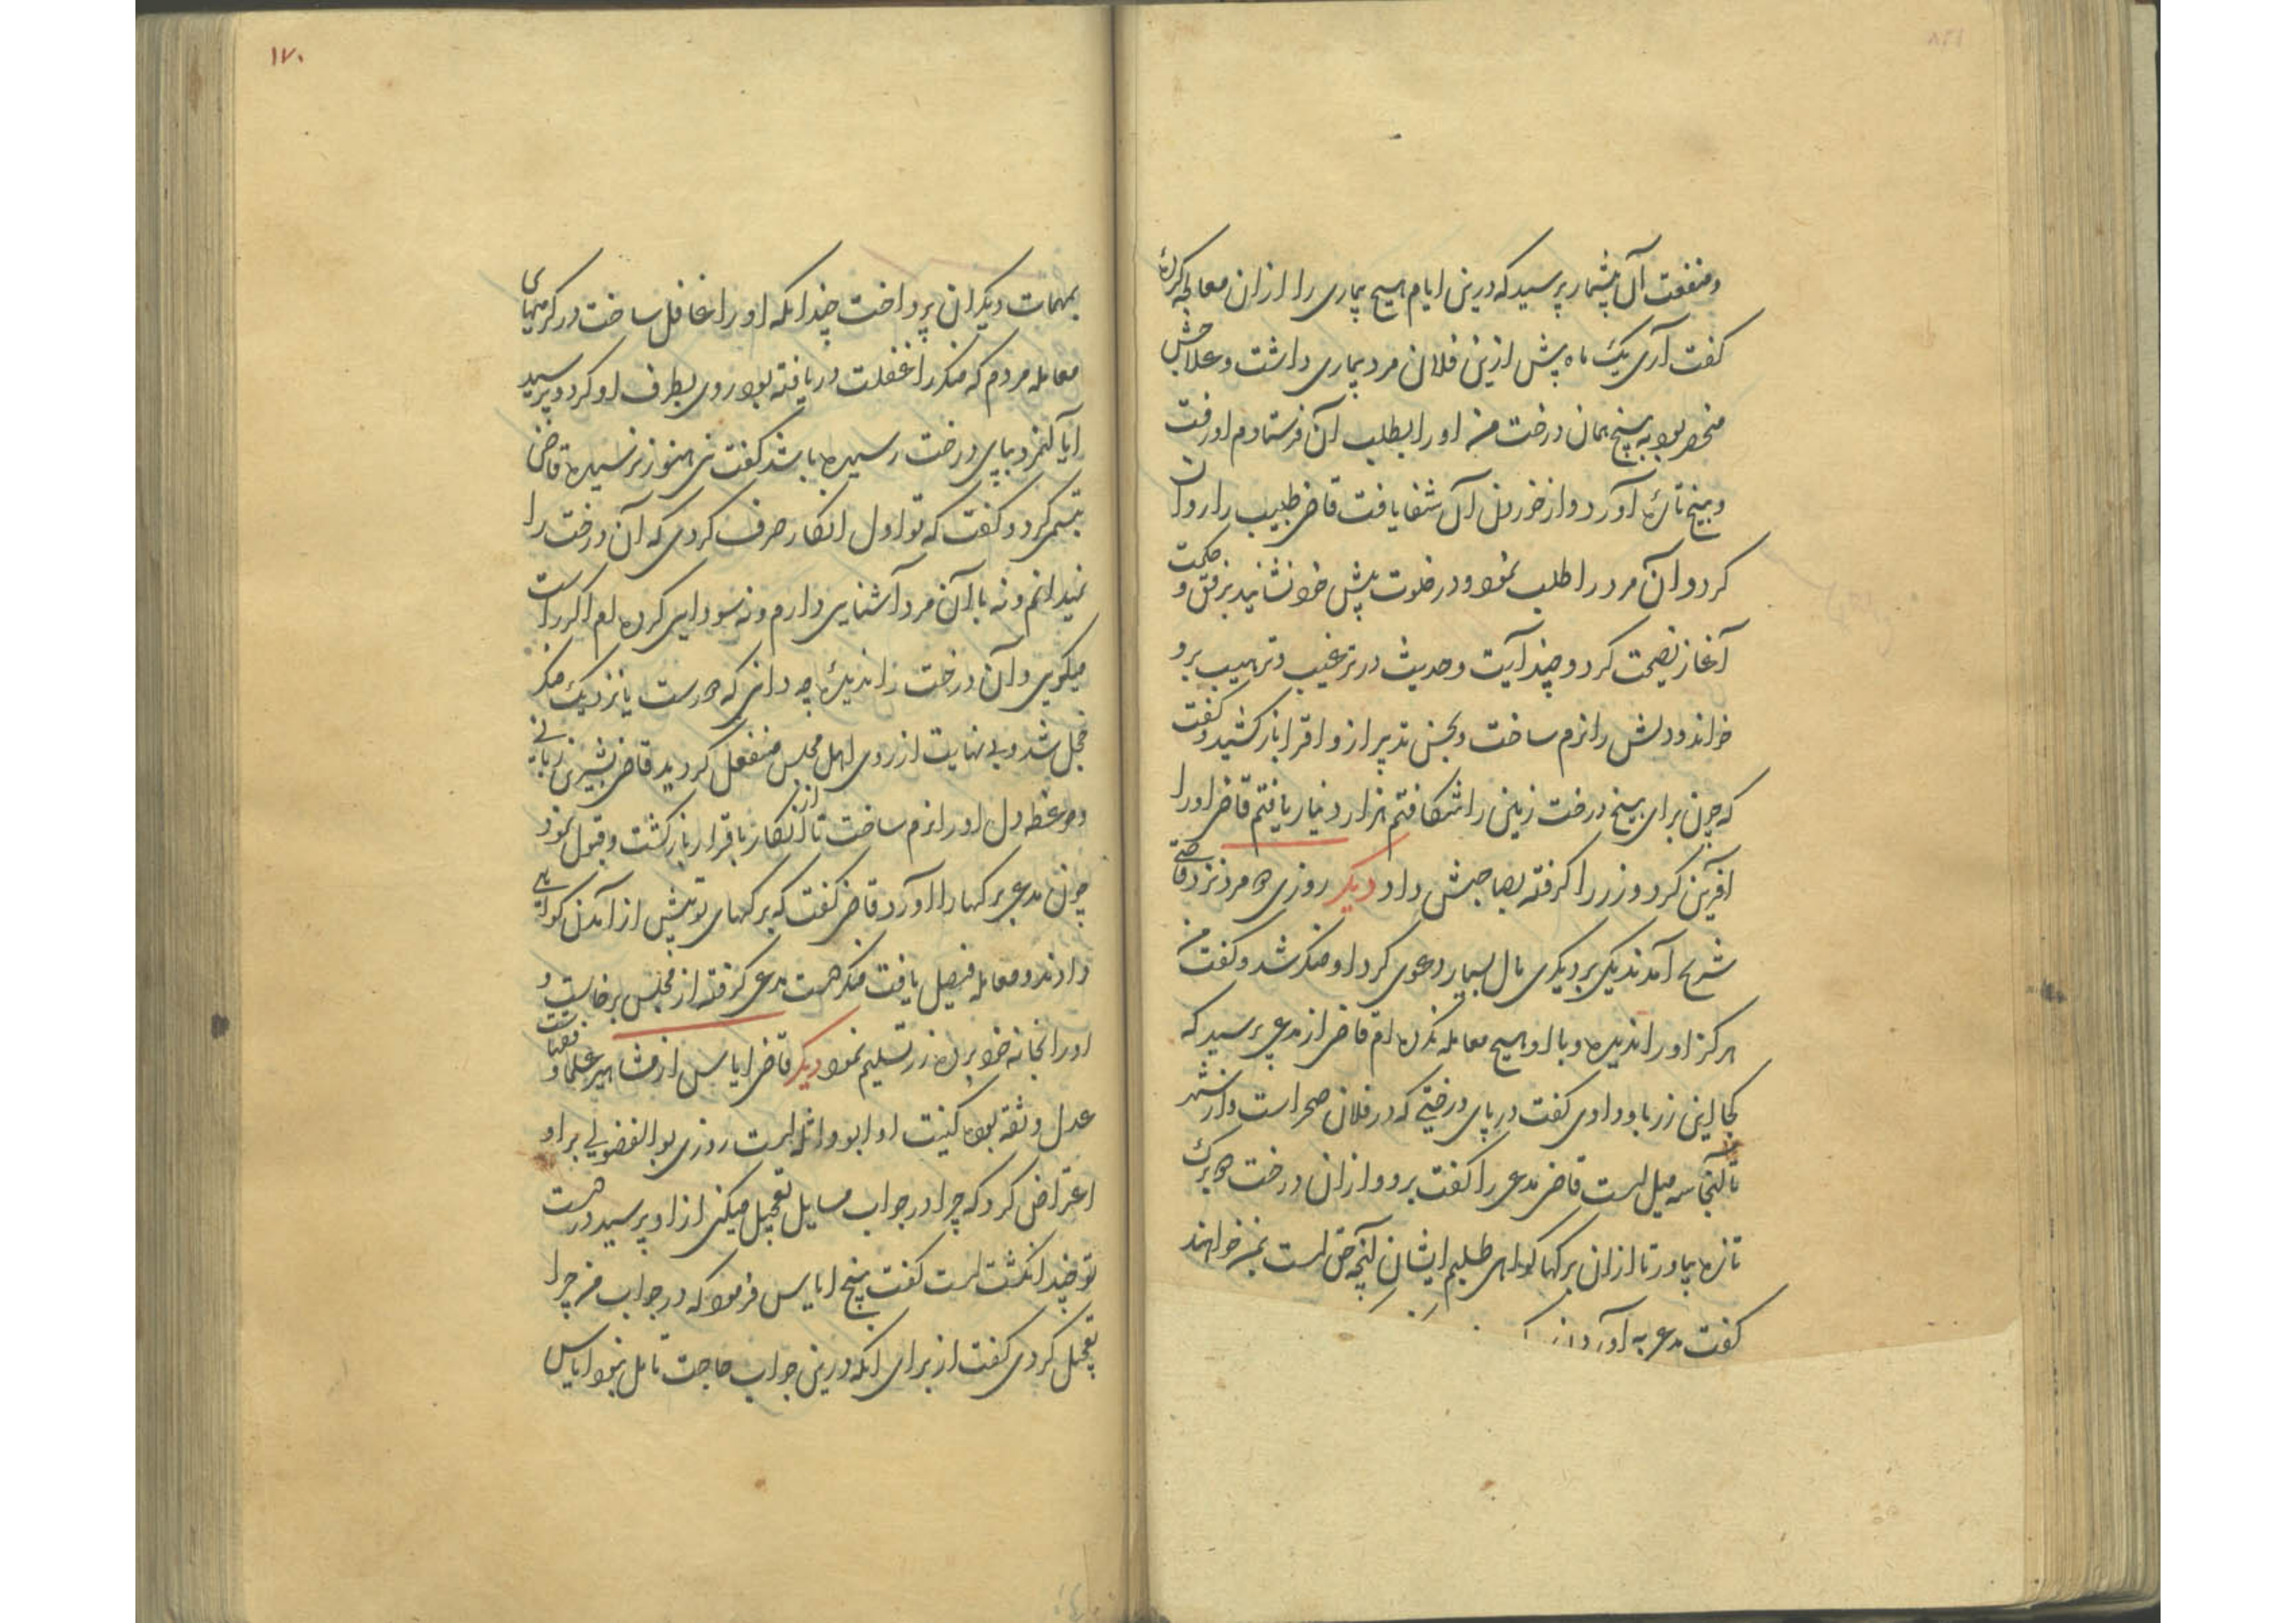 ومنفعت آن بیشمار پرسید که درین ایام هیچ بیماری را ازان معالجه کردهٔ
گفت آری یک ماه پیش ازین فلان مرد بیماری داشت و علاجش
منحصر بود به بیخ همان درخت من او را بطلب آن فرستادم او رفت
و بیخ تازه آورد و از خوردن آن شفا یافت قاضی طبیب را روان
کرد و آن مرد را طلب نمود و در خلوت پیش خود نشانید برفق و حکمت
آغاز نصیحت کرد و چند آیت و حدیث در ترغیب و ترهیب برو
خواند و دلش را نرم ساخت و بحسن تدبیر ازو اقرار باز کشید و گفت
که چون برای بیخ درخت زمین را شکافتم هزار دینار یافتم قاضی او را
آفرین کرد و زر را گرفته بصاحبش داد دیگر روزی دو مرد نزد قاضی
شریح آمدند یکی بر دیگری مال بسیار دعوی کرد او منکر شد و گفت من
هرگز او را ندیده و با او هیچ معامله نکرده ام قاضی از مدعی پرسید که
کجا این زر باو دادی گفت در پای درختی که در فلان صحراست و از شهر
تا آنجا سه میل است قاضی مدعی را گفت برو و ازان درخت دو برگ
تازه بیاور تا ازان برگها گواهی طلبم ایشان آنچه حق است بمن خواهند
گفت مدعی به آوردن
۱۷۰
بمهمات دیگران پرداخت چندانکه او را غافل ساخت در گرمیهای
معامله مردم که منکر را غفلت دریافته بود روی بطرف او کرد و پرسید
آیا آنمرد بپای درخت رسیده باشد گفت نی هنوز نرسیده قاضی
تبسمی کرد و گفت که تو اول انکار صرف کردی که آن درخت را
نمیدانم و نه با آن مرد آشنایی دارم و نه سودایی کرده ام اگر راست
میگویی و آن درخت را ندیدهٔ چه دانی که دورست یا نزدیک منکر
خجل شد و بی نهایت از روی اهل مجلس منفعل گردید قاضی بشیرین زبانی
و موعظه دل او را نرم ساخت تا از انکار باقرار باز گشت و قبول نمود
چون مدعی برگها را آورد قاضی گفت که برگهای تو پیش از آمدن گواهی
دادند و معامله فیصل یافت منکر دست مدعی گرفته از مجلس برخاست و
او را بخانه خود برده زر تسلیم نمود دیگر قاضی ایاس از مشاهیر علما و قضات
عدل و ثقه بوده کنیت او ابو واثله است روزی بوالفضولی بر او
اعتراض کرد که چرا در جواب مسایل تعجیل میکنی ازو پرسید در دست
تو چند انگشت است گفت پنج ایاس فرمود که در جواب من چرا
تعجیل کردی گفت از برای آنکه درین جواب حاجت تامل نبود ایاس